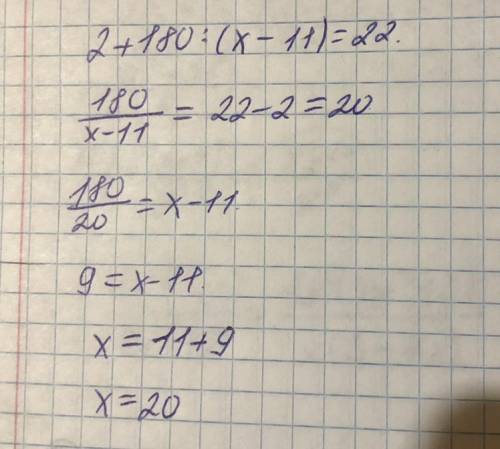 2+180:(x-11)=22.
180/(x-11) = 22-2=20
180/20 = x-11.
9=x-11.
x=11+9
x=20